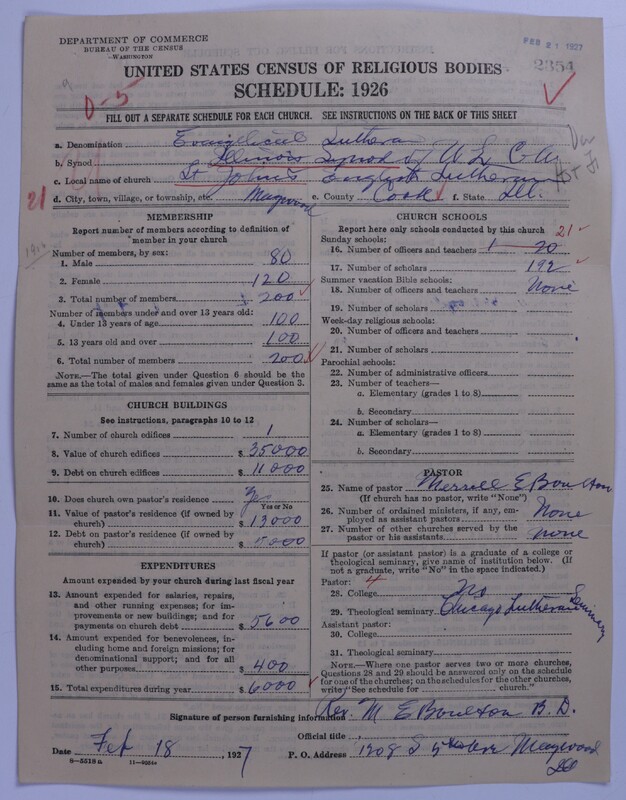 DEPARTMENT OF COMMERCE
BUREAU OF THE CENSUS
WASHINGTON
FEB 21 1927
2354
UNITED STATES CENSUS OF RELIGIOUS BODIES
SCHEDULE: 1926
D-5
FILL OUT A SEPARATE SCHEDULE FOR EACH CHURCH. SEE INSTRUCTIONS ON THE BACK OF THIS SHEET
a. Denomination Evangelical Lutheran
b. Synod Illinois Synod of U L C A
c. Local name of church St John's English Lutheran
21
d. City, town, village, or township, etc. Maywood e. County Cook f. State Ill.
MEMBERSHIP
Report number of members according to definition of member in your church
Number of members, by sex:
1. Male 80
2. Female 120
3. Total number of members 200
Number of members under and over 13 years old:
4. Under 13 years of age 100
5. 13 years old and over 100
6. Total number of members 200
NOTE.—The total given under Question 6 should be
same as the total of males and females given under Question 3.
CHURCH BUILDINGS
See instructions, paragraphs 10 to 12
7. Number of church edifices 1
8. Value of church edifices $ 35000
9. Debt on church edifices $ 11000
10. Does church own pastor's residence Yes
Yes or No
11. Value of pastor's residence (if owned by
church) $ 13000
12. Debt on pastor's residence (if owned by
church) $ 5000
EXPENDITURES
Amount expended by your church during last fiscal year
13. Amount expended for salaries, repairs,
and other running expenses; for im-
provements or new buildings; and for
payments on church debt $ 5600
14. Amount expended for benevolences,
including home and foreign missions; for
denominational support; and for all
other purposes $ 400
15. Total expenditures during year $ 6000
CHURCH SCHOOLS
Report here only schools conducted by this church
21
Sunday schools:
16. Number of officers and teachers 20
17. Number of scholars 192
Summer vacation Bible schools:
18. Number of officers and teachers None
19. Number of scholars
Week-day religious schools:
20. Number of officers and teachers
21. Number of scholars
Parochial schools:
22. Number of administrative officers
23. Number of teachers—
a. Elementary (grades 1 to 8)
b. Secondary
24. Number of scholars—
a. Elementary (grades 1 to 8)
b. Secondary
PASTOR
25. Name of pastor Merrill E Boulton
(If church has no pastor, write "None")
26. Number of ordained ministers, if any, em-
ployed as assistant pastors None
27. Number of other churches served by the
pastor or his assistants none
If pastor (or assistant pastor) is a graduate of a college or
theological seminary, give name of institution below. (If
not a graduate, write "No" in the space indicated.)
Pastor: 4
28. College No
29. Theological seminary Chicago Lutheran Seminary
Assistant pastor:
30. College
31. Theological seminary
NOTE.—Where one pastor serves two or more churches,
Questions 28 and 29 should be answered only on the schedule
for one of the churches; on the schedules for the other churches,
write "See schedule for church."
Signature of person furnishing information Rev. M E Boulton B. D.
Official title
Date Feb 18, 1927
P. O. Address 1908 S 5th Ave Maywood
Ill
8-5518 a